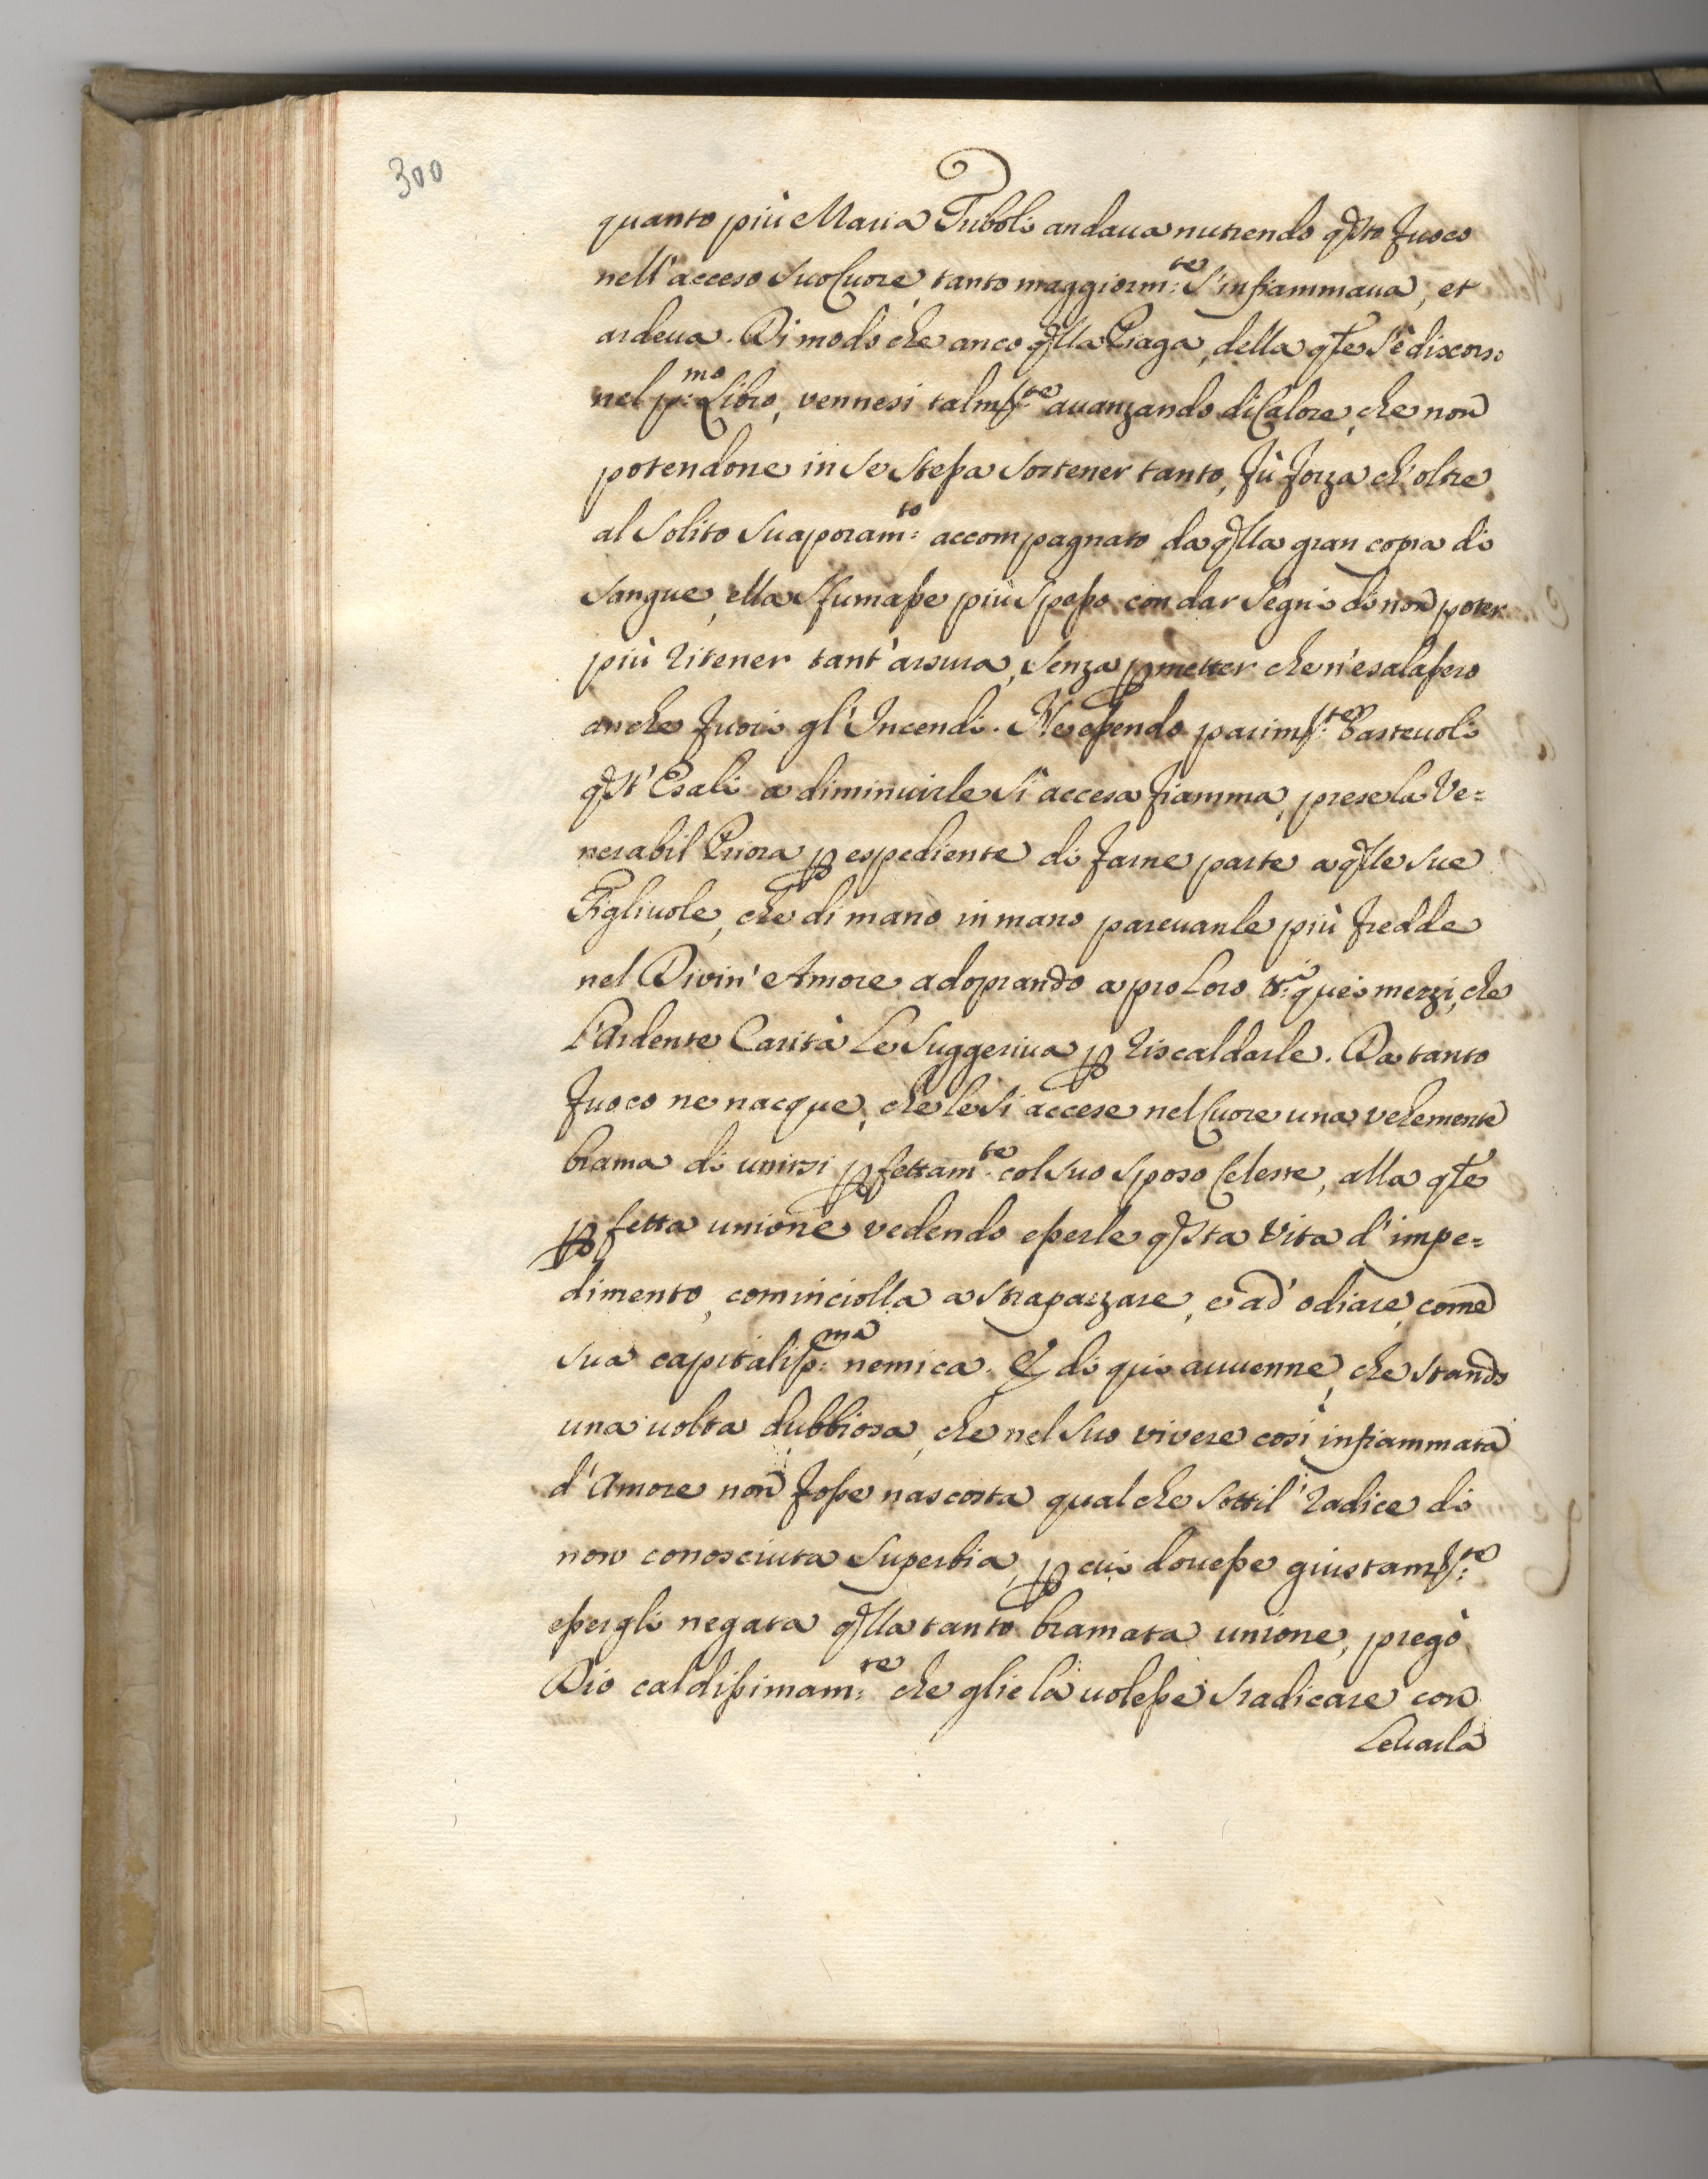 300
quanto più Maria Triboli andaua nutrendo qsto fuoco
nell'acceso suo Cuore, tanto maggiorm:te s'infiammaua, et
ardeua. Di modo che anco qlla Piaga, della qle s'è discorso
nel p:mo Libro, vennesi talm:te auanzando di Calore, che non
potendone in se stessa sostener tanto, fù forza ch'oltre
al solito suaporam:to accompagnato da qlla gran copia di
sangue, ella sfumasse più spesso con dar segni di non poter
più ritener tant'arsura, senza pmetter che n'esalassero
anche fuori gl'Incendi. Ne essendo parim:te Basteuoli
qst'Esali a diminuirle sì accesa fiamma, prese la Ve=
nerabil Priora p espediente di farne parte a qlle sue
Figliuole, che di mano in mano pareuanle più fredde
nel Divin'Amore adoprando a pro Loro tt:i quei mezzi, che
l'Ardente Carità Le suggeriua p riscaldarle. Da tanto
fuoco ne nacque, che le si accese nel Cuore una vehemente
brama di unirsi pfettam:te col suo sposo Celeste, alla qle
pfetta unione vedendo esserle qsta Vita d'impe=
dimento, cominciolla a strapazzare, e ad'odiare, come
sua capitaliss:ma nemica. E di qui auuenne, che stando
una uolta dubbiosa, che nel suo vivere così infiammata
d'Amore non fosse nascosta qualche sottil'radice di
non conosciuta superbia, p cui douesse giustam:te
essergli negata qlla tanto bramata unione, pregò
Dio caldissimam:te che gliela uolesse sradicare con
Leuarla